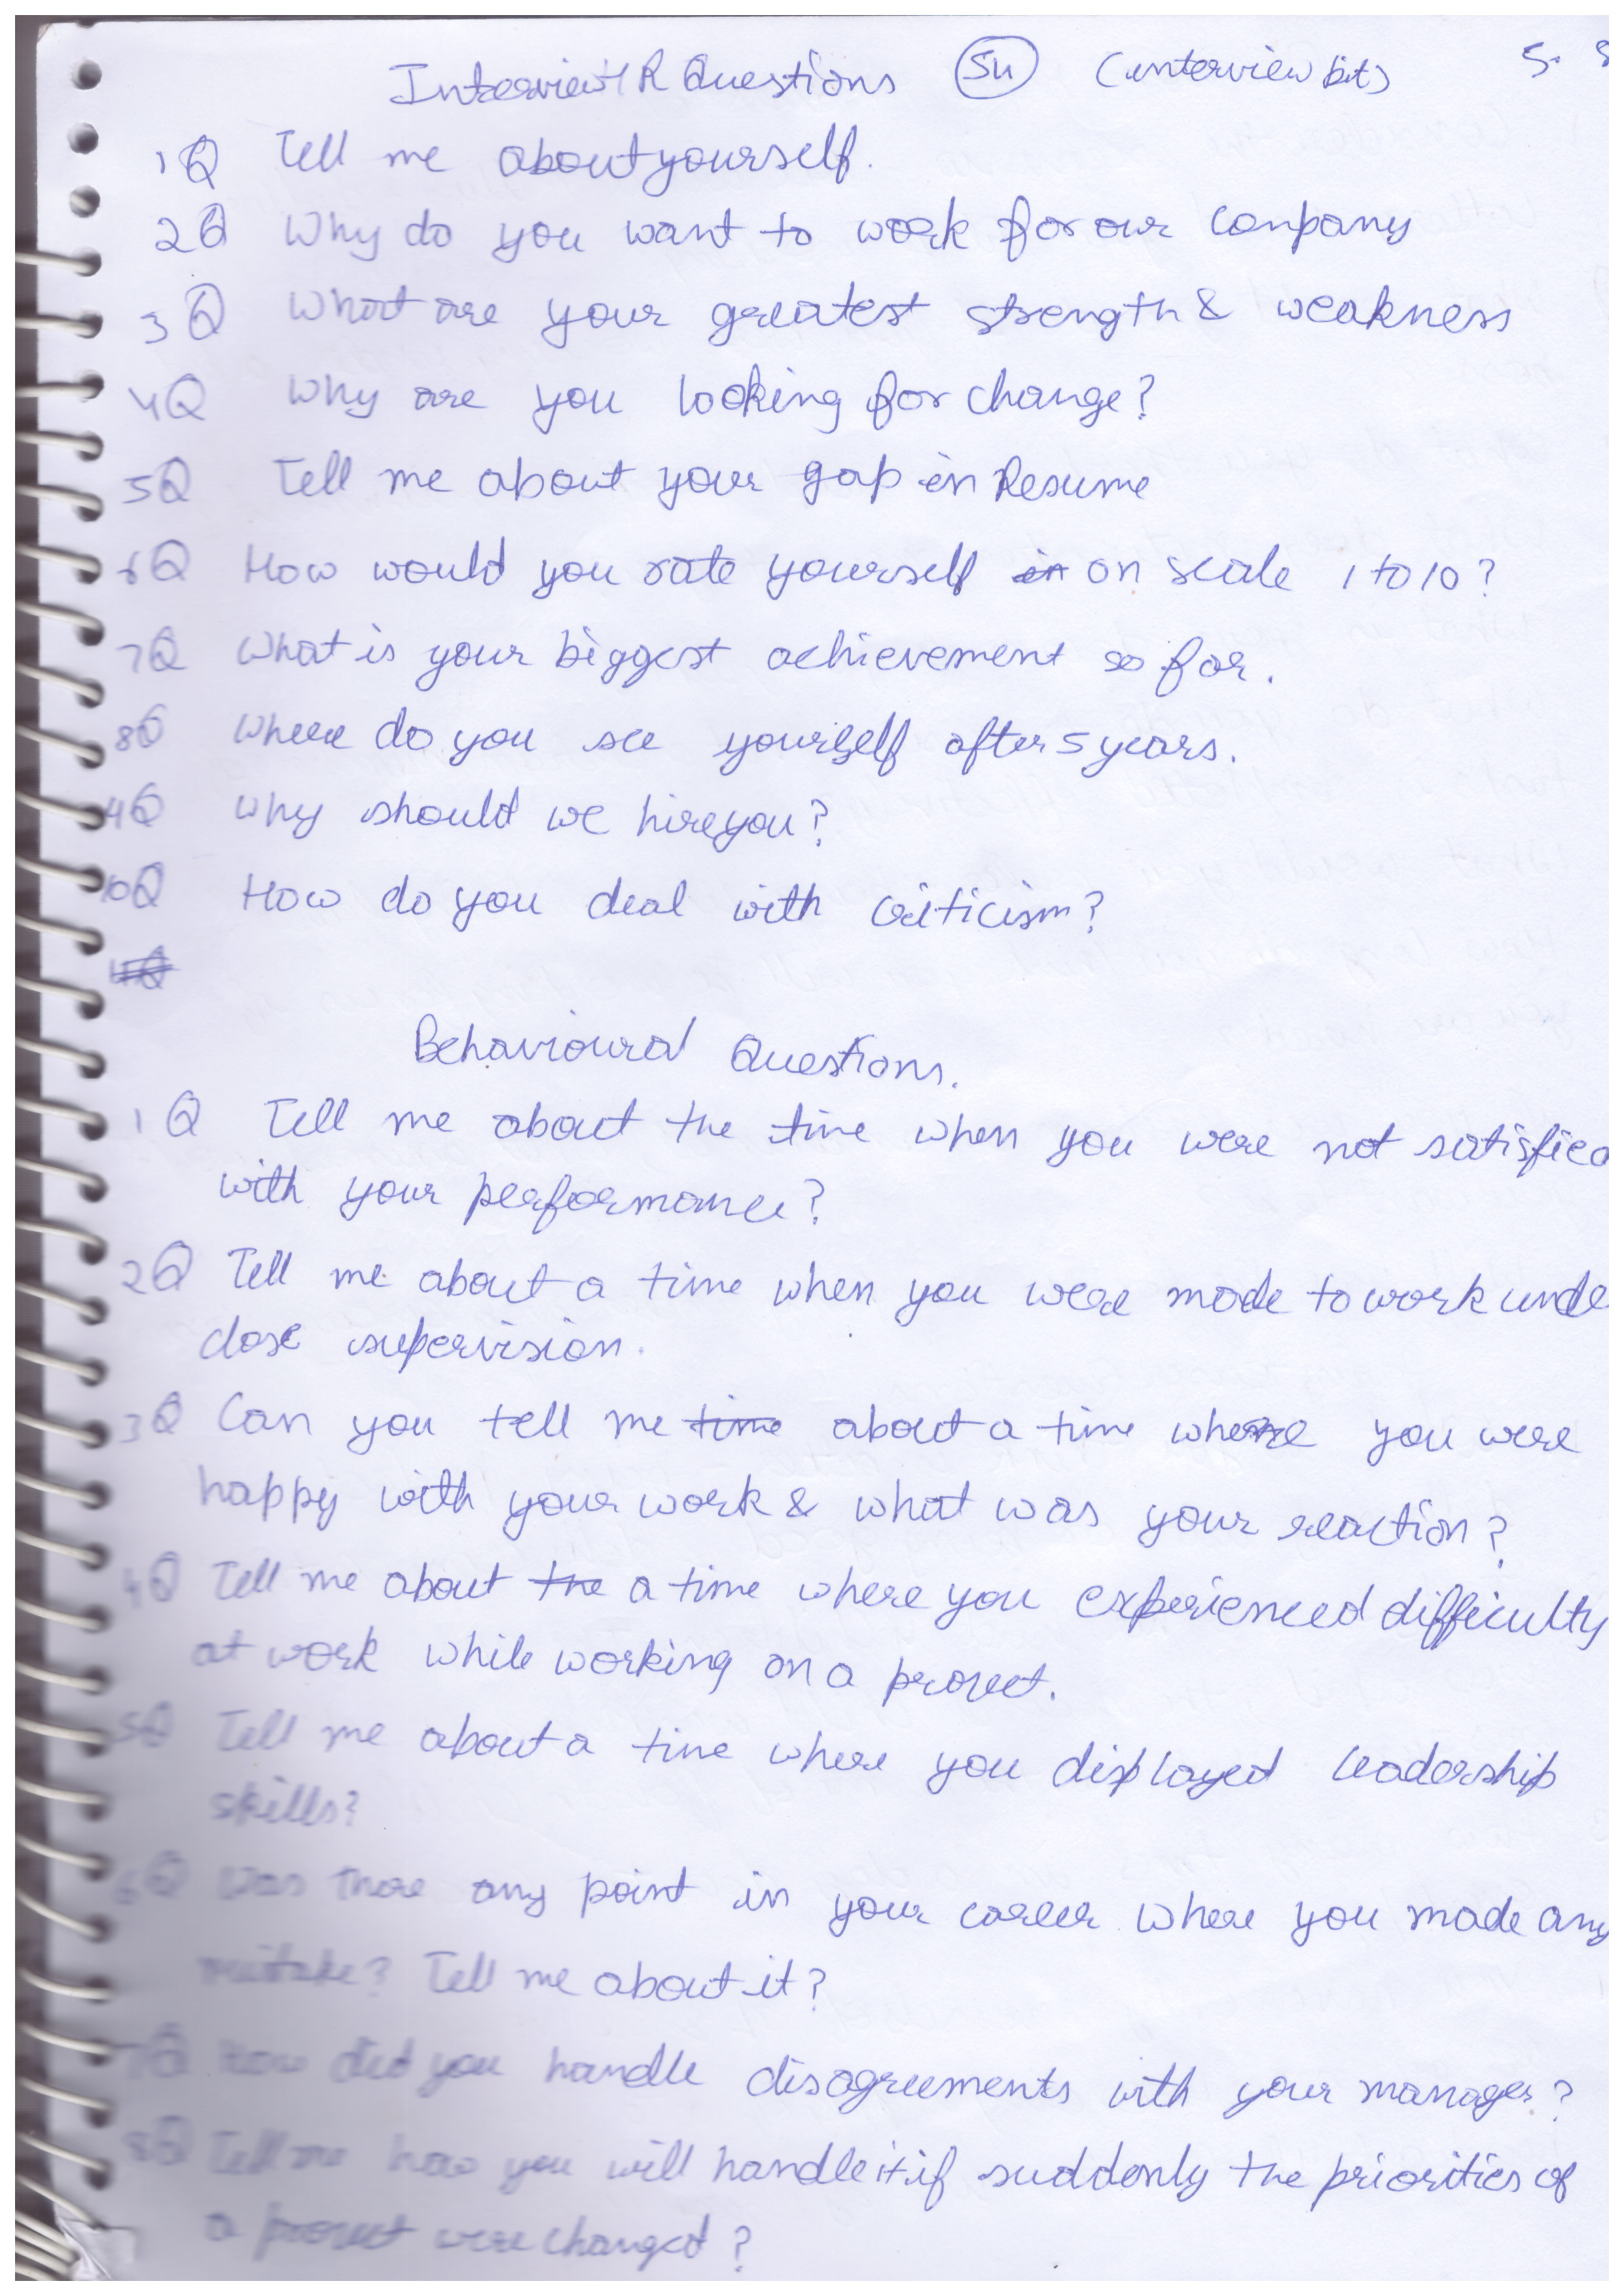 Interview HR Questions (54) (interview bit) 5.
1Q Tell me about yourself.
2Q Why do you want to work for our Company
3Q What are your greatest strength & weakness
4Q Why are you looking for change?
5Q Tell me about your gap in Resume
6Q How would you rate yourself on scale 1 to 10?
7Q What is your biggest achievement so far.
8Q Where do you see yourself after 5 years.
9Q Why should we hire you?
10Q How do you deal with criticism?
Behavioural Questions.
1Q Tell me about the time when you were not satisfied
with your performance?
2Q Tell me about a time when you were made to work unde
close supervision.
3Q Can you tell me about a time where you were
happy with your work & what was your reaction?
4Q Tell me about a time where you experienced difficulty
at work while working on a project.
5Q Tell me about a time where you displayed leadership
skills?
6Q Was there any point in your career where you made any
mistake? Tell me about it?
7Q How did you handle disagreements with your manager?
8Q Tell me how you will handle it if suddenly the priorities of
a project were changed?